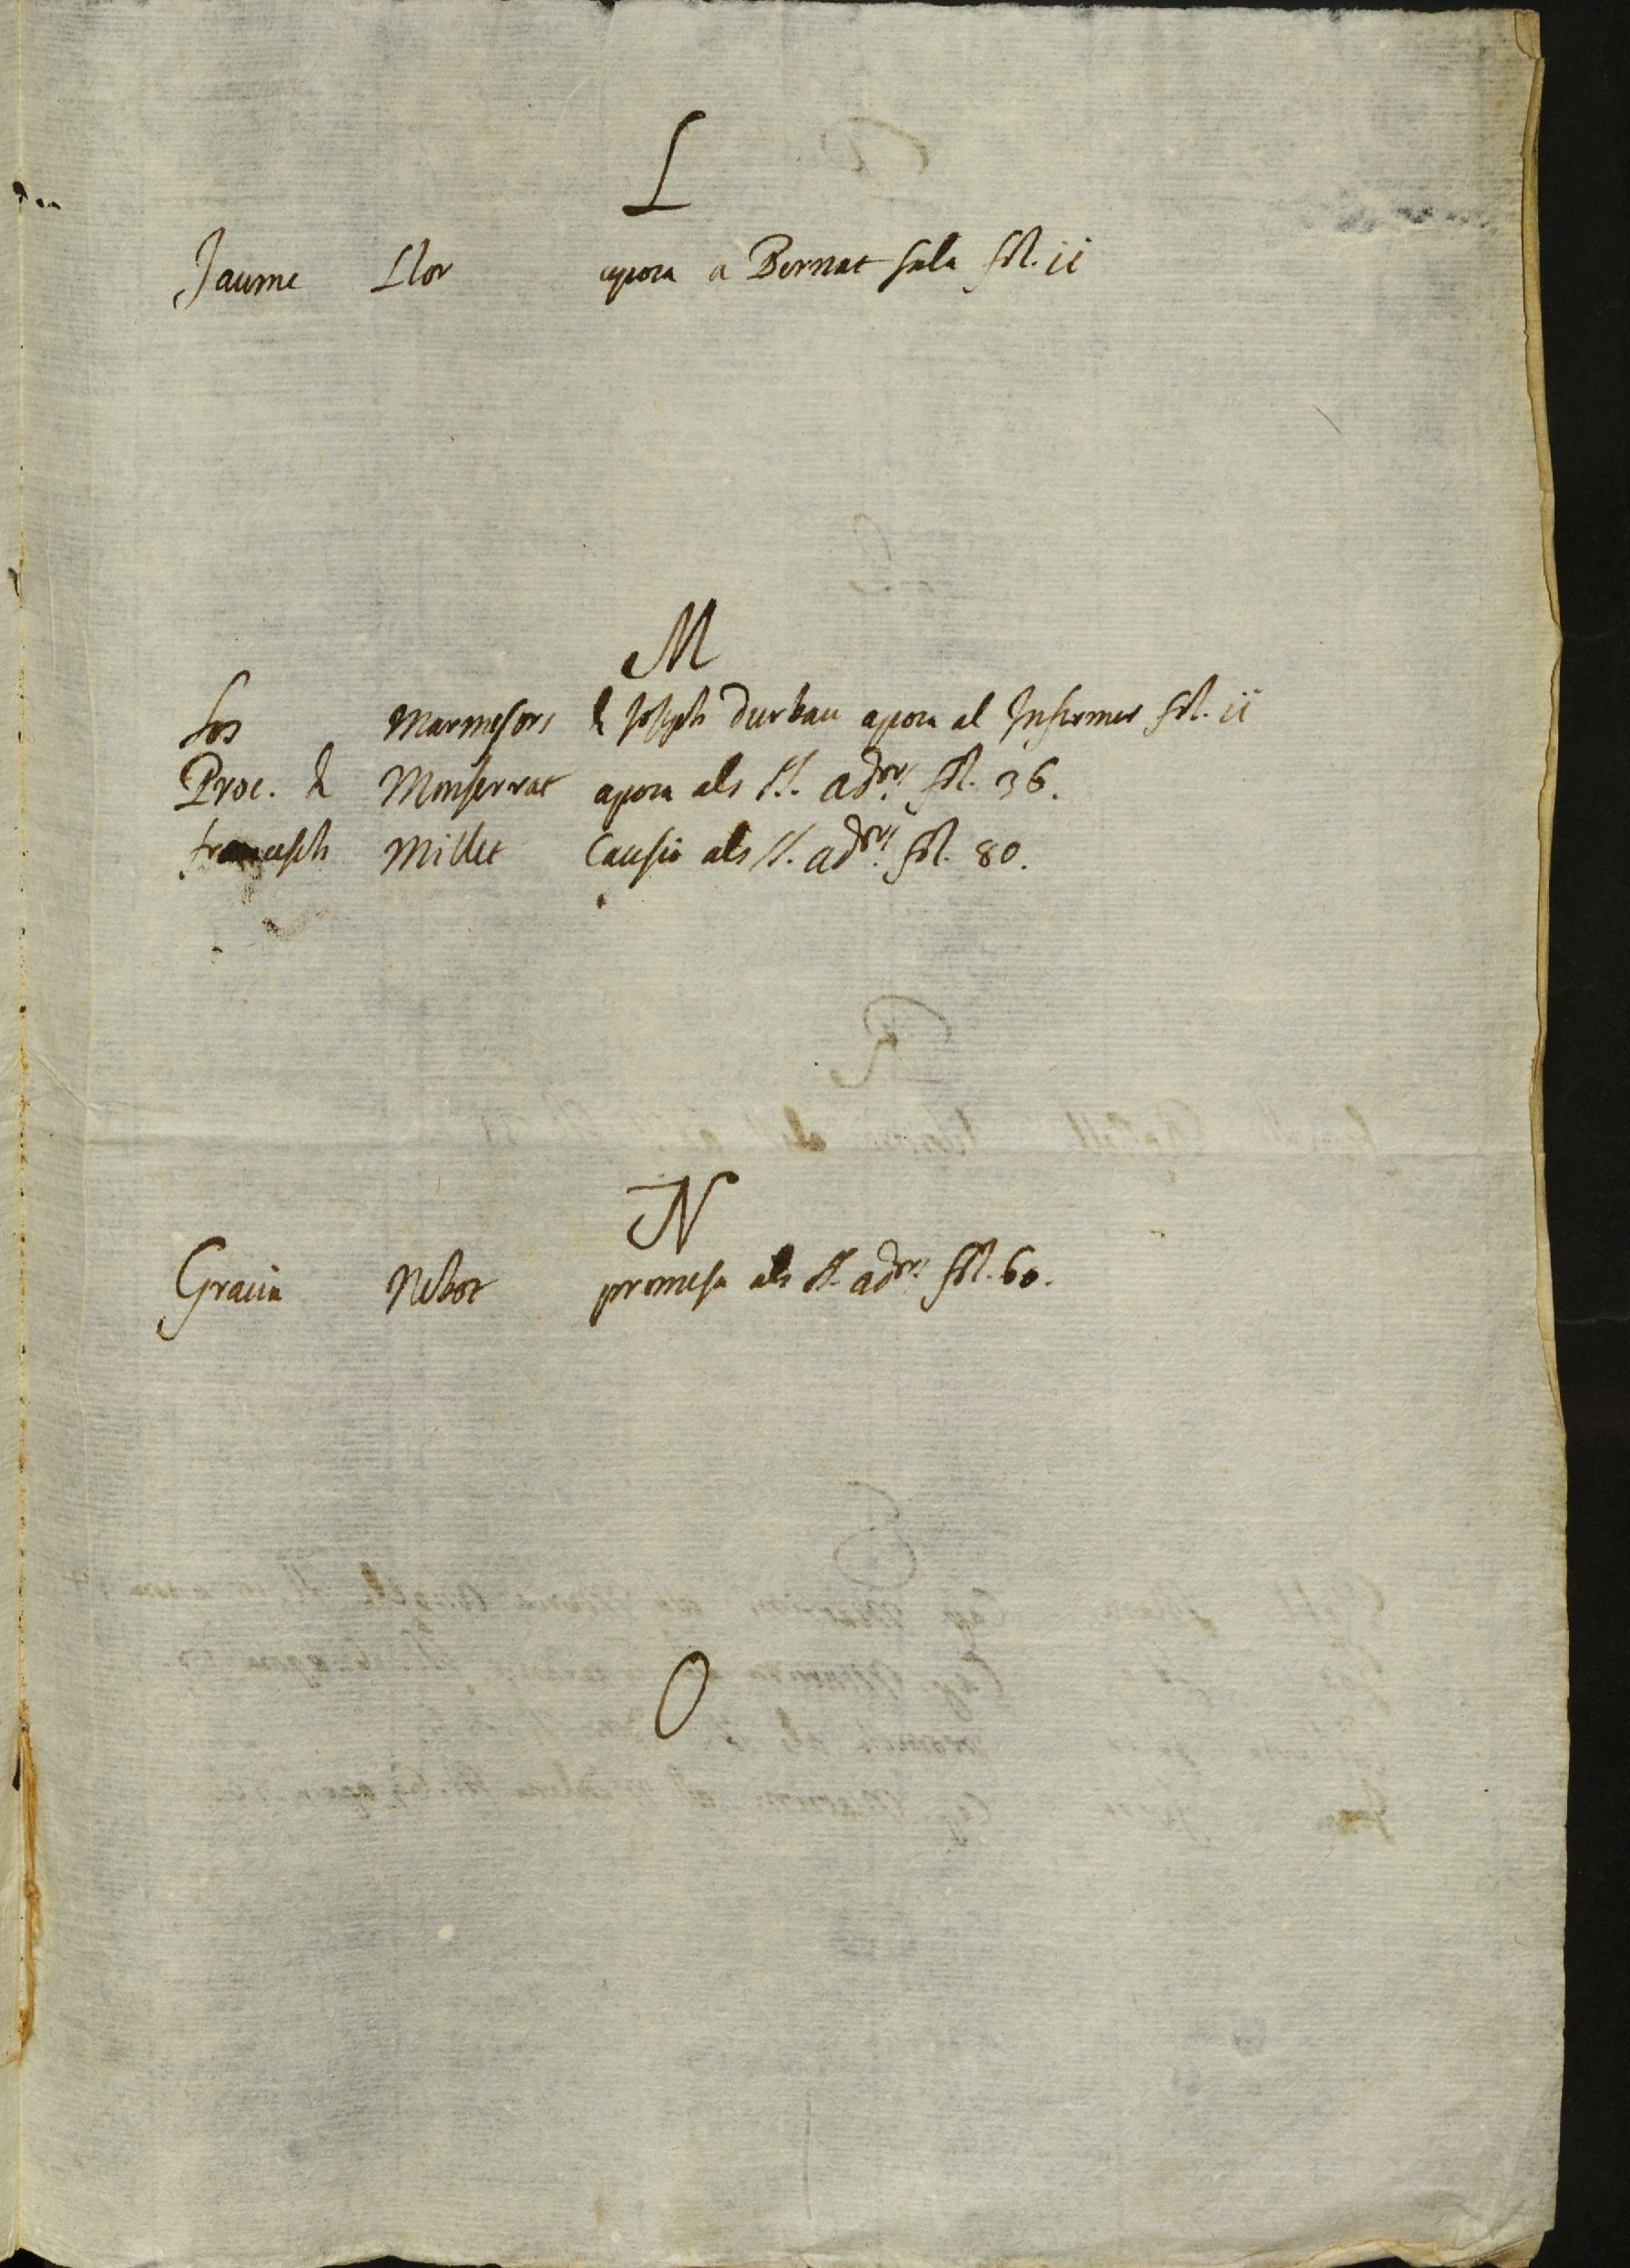 L
Jaume Llor apoca a Bernat Sala fol. ii
M
Los Marmesors de Joseph Durban apoca al Infermer fol. ii
Proc. de Monserrat apoca als SS. adors. fol. 36.
Francesch Millet Causio als SS. adors. fol. 80.
N
Gracia Nebot promesa als SS. adors. fol. 60.
O